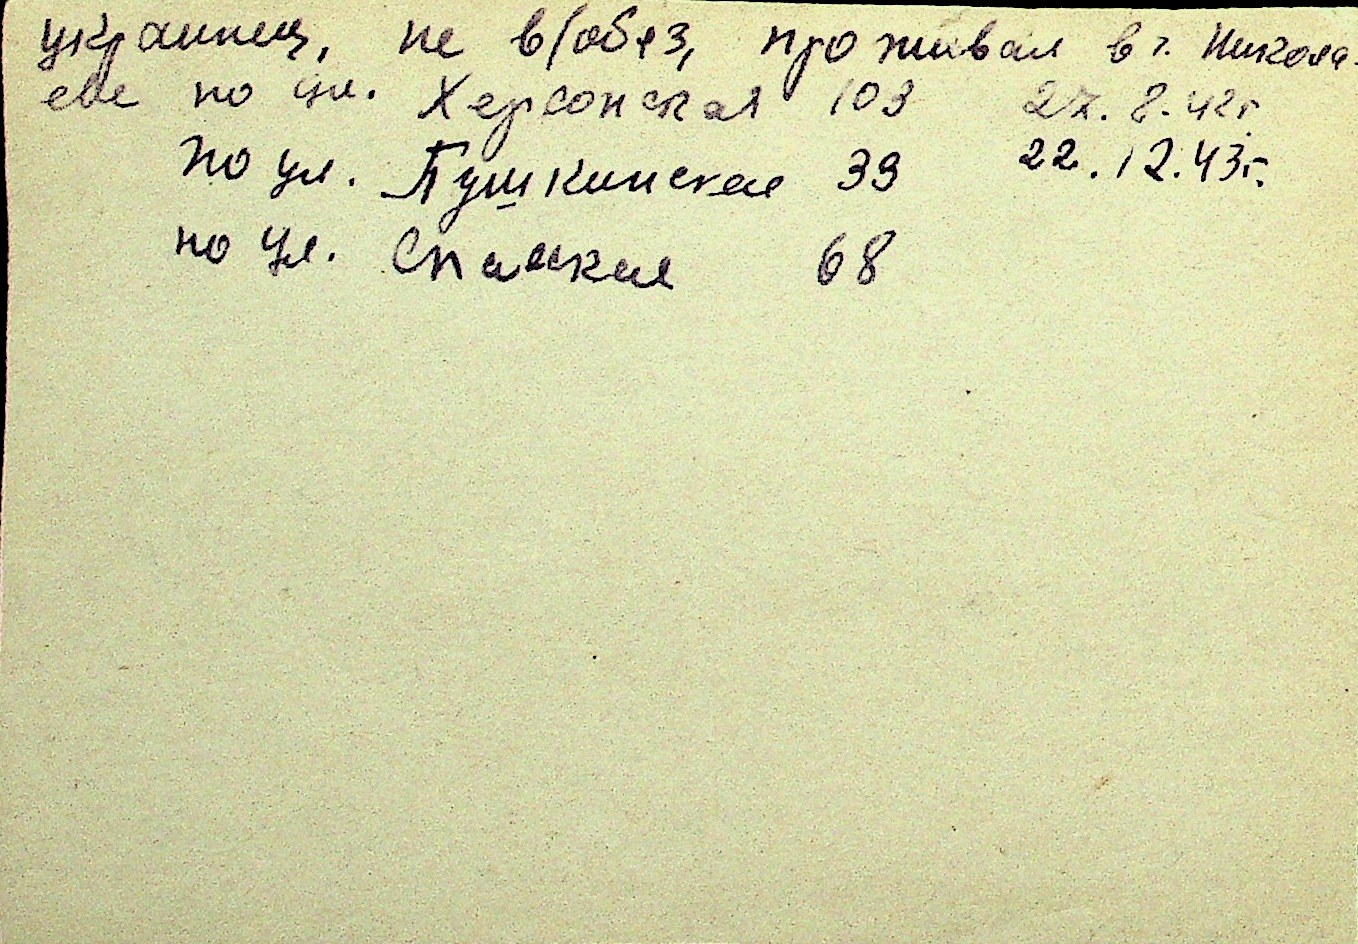 украинец, не в/обяз, проживал в г. Никола-
еве по ул. Херсонская 103 27.8.42г.
по ул. Пушкинская 39 22.12.43г.
по ул. Спасская 68